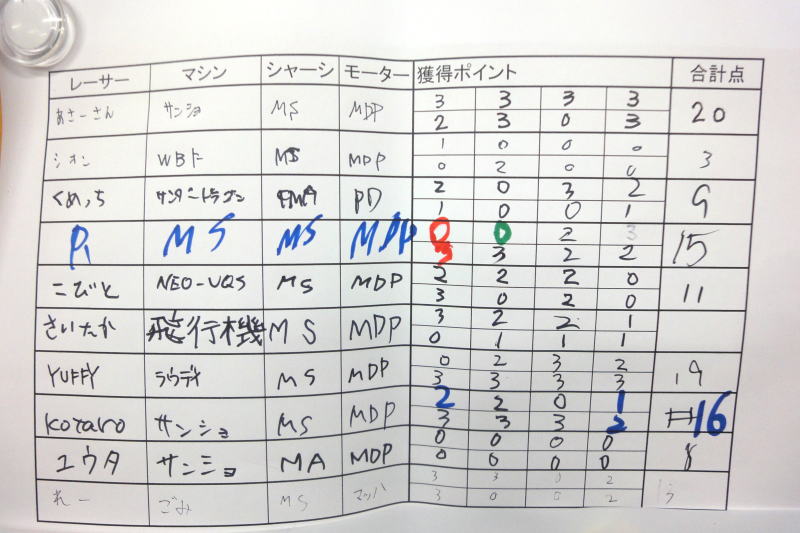 レーサー マシン シャーシ モーター 獲得ポイント 合計点
あさーさん サンショ MS MDP 3 3 3 3 20
2 3 0 3
シオン WBF MS MDP 1 0 0 0 3
0 2 0 0
くめっち サンダードラゴン FMA PD 2 0 3 2 9
1 0 0 1
MS MS MDP 0 0 2 3 15
3 3 2 2
こびと NEO-VQS MS MDP 2 2 2 0 11
3 0 2 0
さいたか 飛行機 MS MDP 3 2 2 1
0 1 1 1
YUFFY ラウディ MS MDP 0 2 3 2 19
3 3 3 3
Kotaro サンショ MS MDP 2 2 0 1 16
3 3 3 2
ユウタ サンショ MA MDP 0 0 0 0 8
0 0 0 0
れー ごみ MS マッハ 3 3 0 2
3 0 0 2